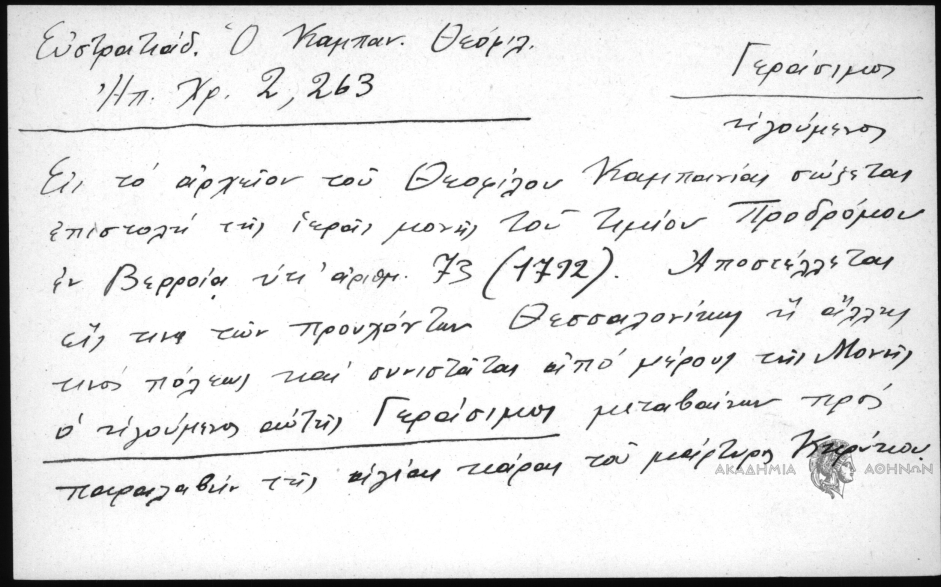 Εὐστρατιάδ. Ὁ Καμπαν. Θεόφιλ.
Ἠπ. Χρ. 2, 263
Γεράσιμος
ἡγούμενος
Εἰς τό ἀρχεῖον τοῦ Θεοφίλου Καμπανίας σώζεται
ἐπιστολή τῆς ἱερᾶς μονῆς τοῦ τιμίου Προδρόμου
ἐν Βερροίᾳ ὑπ' ἀριθμ. 73 (1792). Ἀποστέλλεται
εἴς τινα τῶν προυχόντων Θεσσαλονίκης ἤ ἄλλης
τινός πόλεως καί συνιστᾶται ἀπό μέρους τῆς Μονῆς
ὁ ἡγούμενος αὐτῆς Γεράσιμος μεταβαίνων πρός
παραλαβήν τῆς ἁγίας κάρας τοῦ μάρτυρος Κηρύκου.
ΑΚΑΔΗΜΙΑ ΑΘΗΝΩΝ